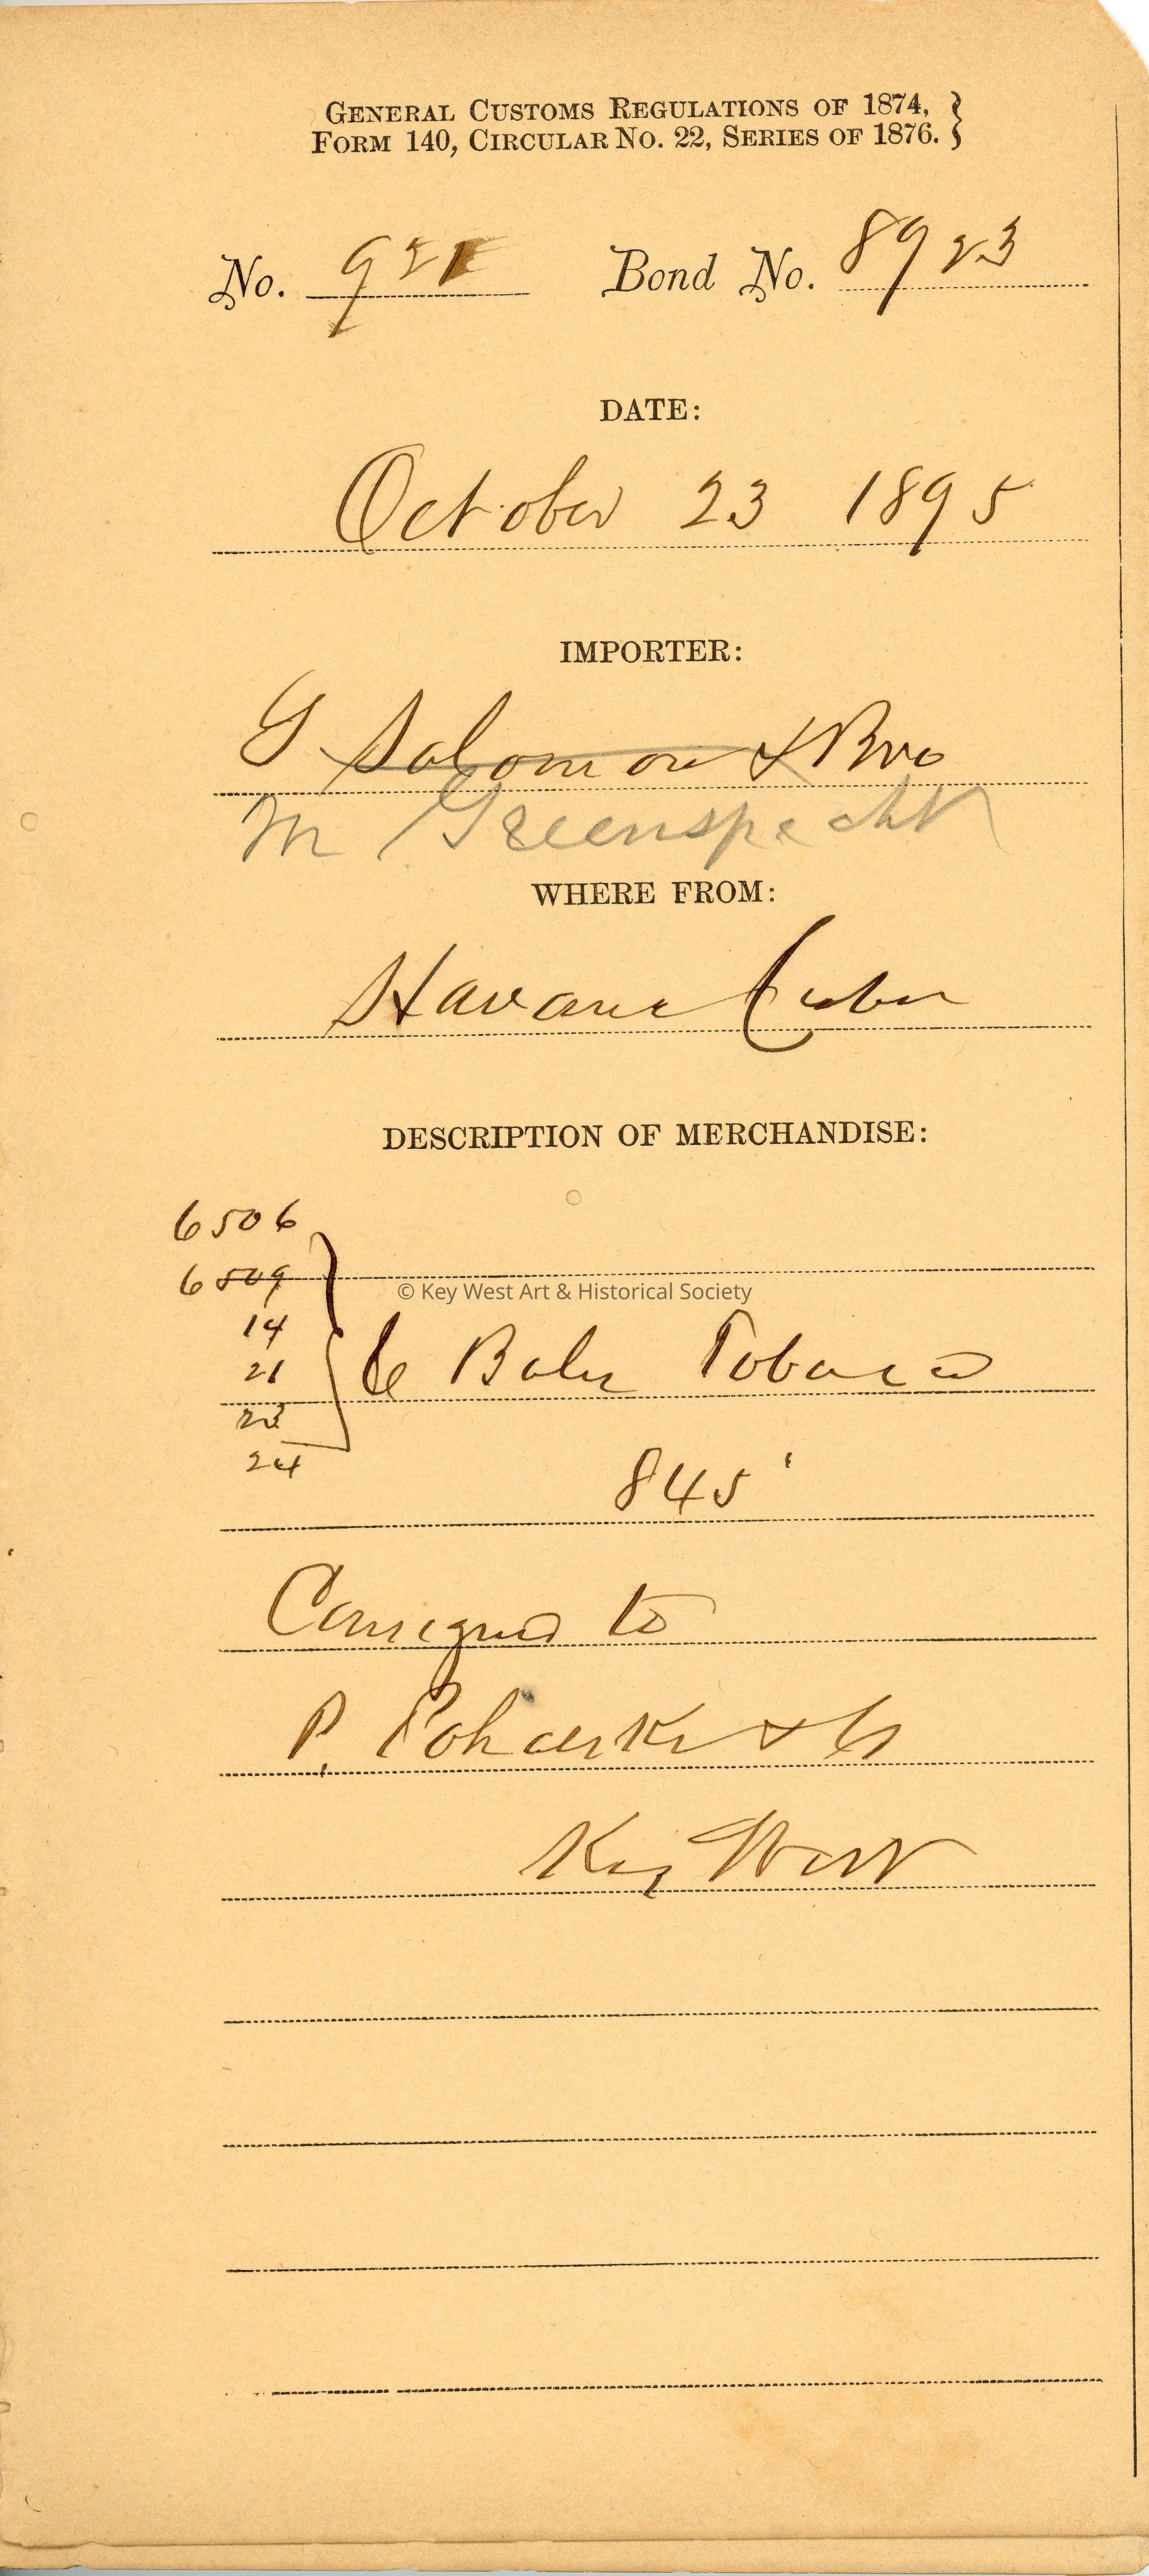 GENERAL CUSTOMS REGULATIONS OF 1874, }
FORM 140, CIRCULAR NO. 22, SERIES OF 1876. }
No. 921 Bond No. 8923
DATE:
October 23 1895
IMPORTER:
G Salomon & Bro
M Greenspecht
WHERE FROM:
Havana Cuba
DESCRIPTION OF MERCHANDISE:
6506
6509
© Key West Art & Historical Society
14
21 6 Bales Tobacco
23
24
845
Consigned to
P. Pohalski & Co
Key West